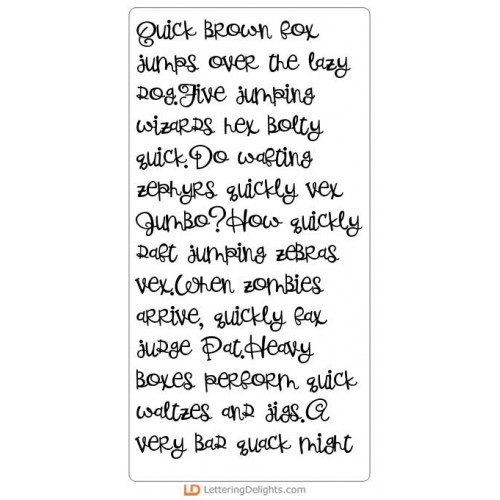 Quick brown fox
jumps over the lazy
dog.Five jumping
wizards hex bolty
quick.Do wafting
zephyrs quickly vex
Jumbo?How quickly
daft jumping zebras
vex.When zombies
arrive, quickly fax
judge Pat.Heavy
boxes perform quick
waltzes and jigs.A
very bad quack might
LD LetteringDelights.com